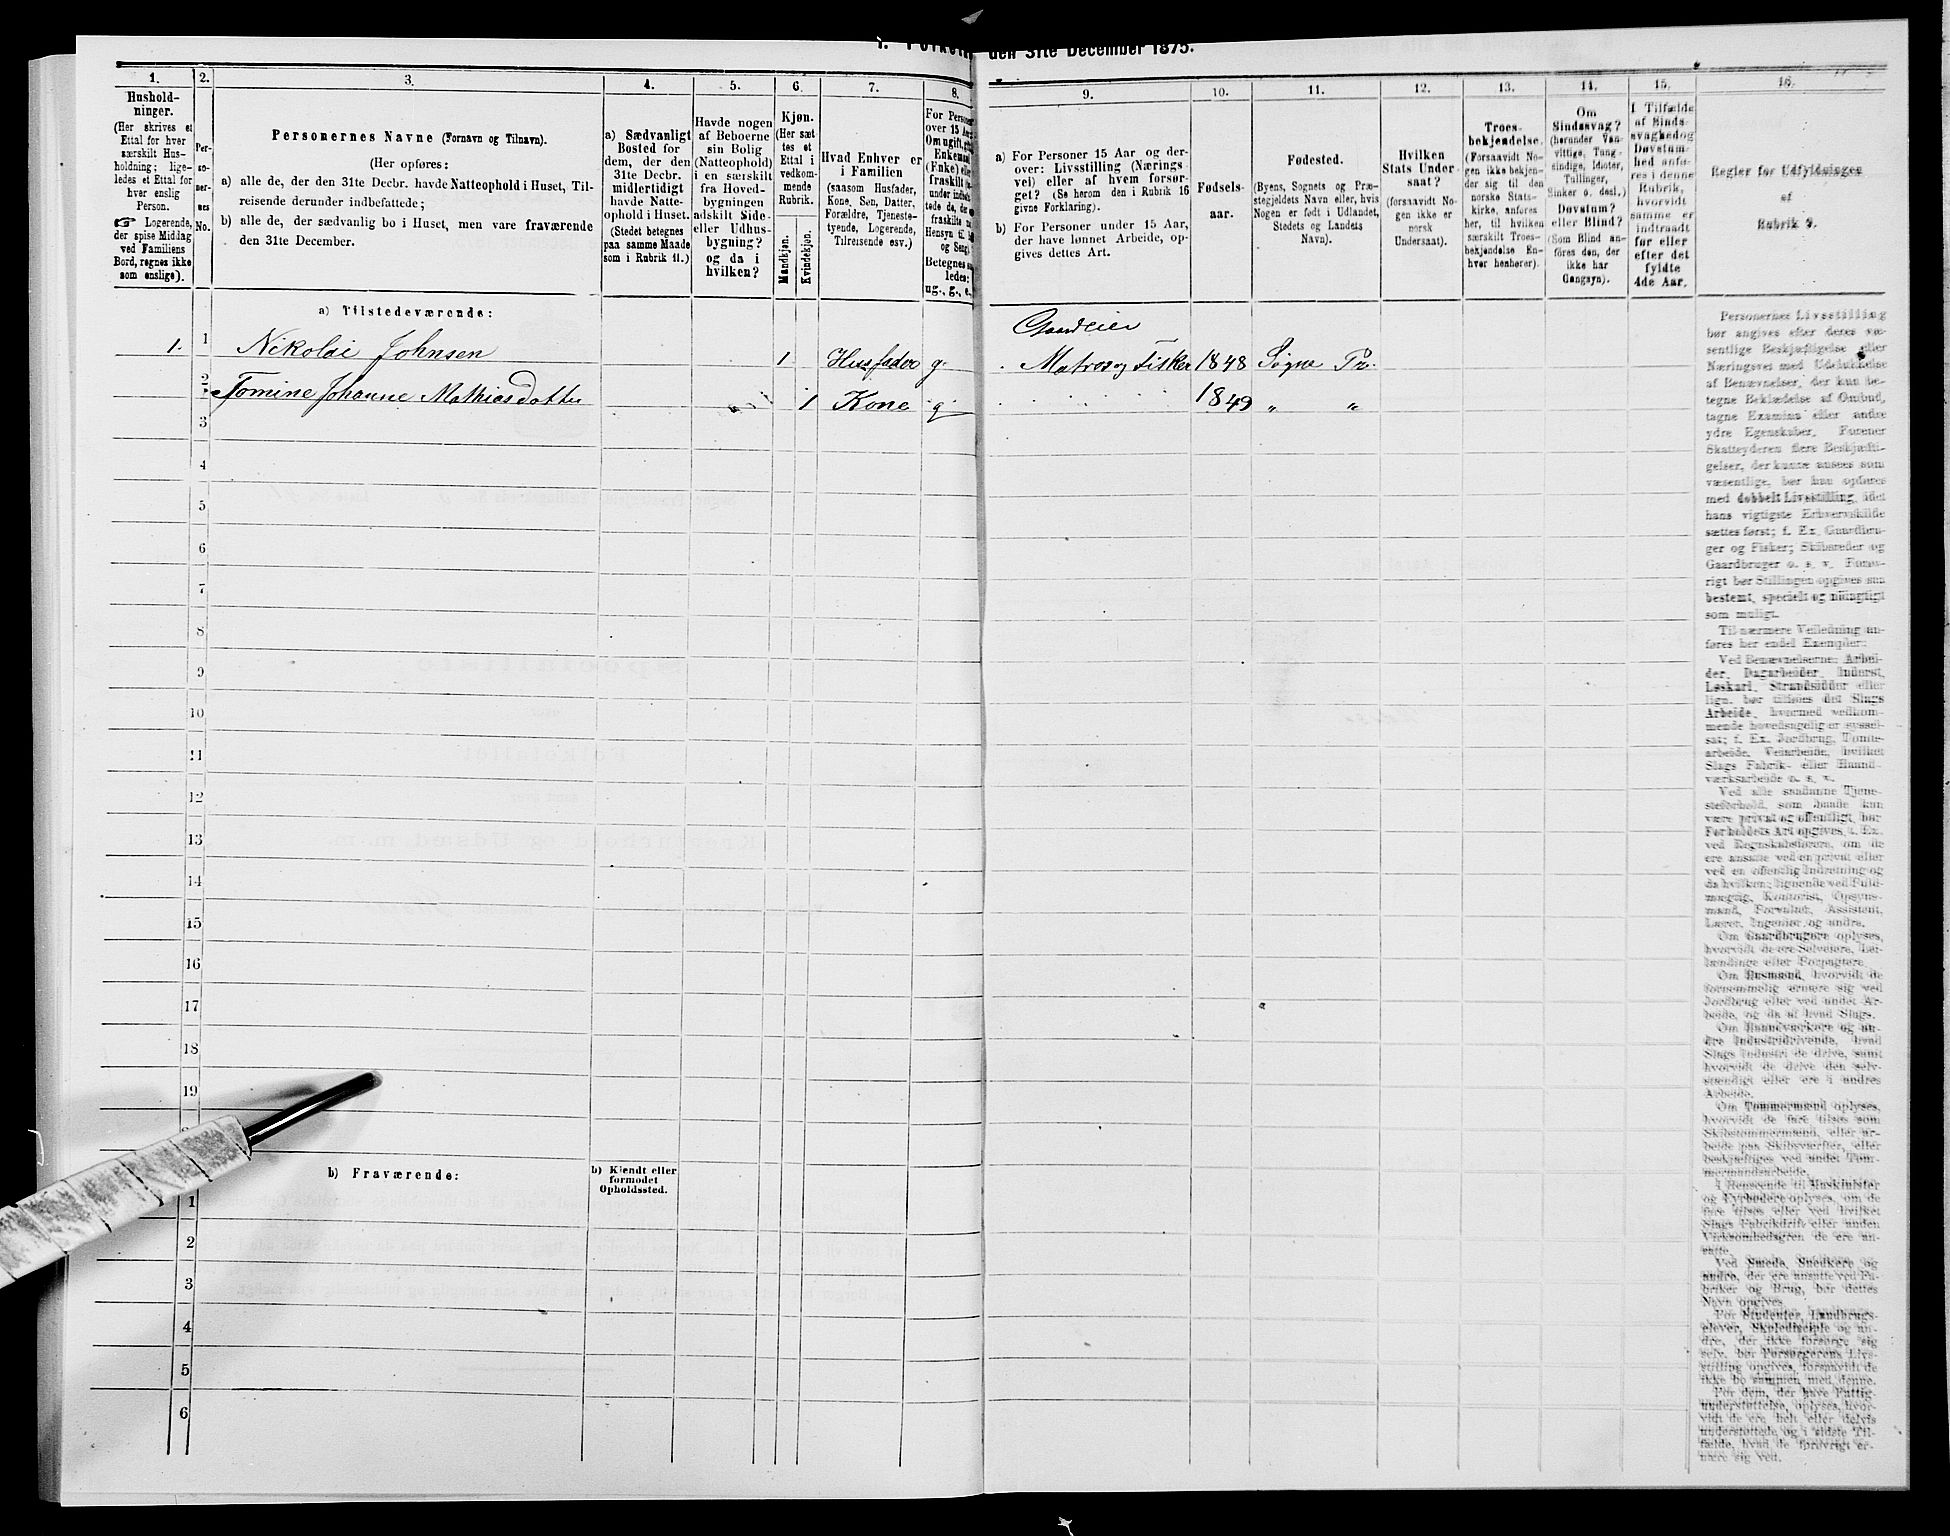 den 31te December 1875.
1.
2.
3.
4.
5.
6.
7.
8.
9.
10.
11.
12.
13.
14.
15.
16.
Hushold-
ninger.
(Her skrives et
Ettal for hver
særskilt Hus-
holdning; lige-
ledes et Ettal for
hver enslig
Person.
☞ Logerende,
der spise Middag
ved Familiens
Bord, regnes ikke
som enslige).
Per-
so-
ner-
nes
No.
Personernes Navne (Fornavn og Tilnavn).
(Her opføres:
a) alle de, der den 31te Decbr. havde Natteophold i Huset, Til-
reisende derunder indbefattede;
b) alle de, der sædvanlig bo i Huset, men vare fraværende
den 31te December.
a) Sædvanligt
Bosted for
dem, der den
31te Decbr.
midlertidigt
havde Natte-
ophold i Huset.
(Stedet betegnes
paa samme Maade
som i Rubrik 11.)
Havde nogen
af Beboerne
sin Bolig
(Natteophold)
i en særskilt
fra Hoved-
bygningen
adskilt Side-
eller Udhus-
bygning?
og da i
hvilken?
Kjøn.
(Her sæt
tes et
Ettal i
vedkom-
mende
Rubrik.
Mandkjøn.
Kvindekjøn.
Hvad Enhver er
i Familien
(saasom Husfader,
Kone, Søn, Datter,
Forældre, Tjeneste-
tyende, Logerende,
Tilreisende osv.)
For Persone
over 15 Aar
Om ugift, gift
Enkemand
(Enke) eller
fraskilt
ug., g., e.
a) For Personer 15 Aar og der-
over: Livsstilling (Nærings-
vei) eller af hvem forsør-
get? (Se herom den i Rubrik 16
givne Forklaring).
b) For Personer under 15 Aar,
der have lønnet Arbeide, op-
gives dettes Art.
Fødsels-
aar.
Fødested.
(Byens, Sognets og Præ-
stegjeldets Navn eller, hvis
Nogen er født i Udlandet,
Stedets og Landets
Navn).
Hvilken
Stats Under-
saat?
(forsaavidt No-
gen ikke er
norsk
Undersaat).
Troes-
bekjendelse.
(Forsaavidt No-
gen ikke bekjen-
der sig til den
norske Stats-
kirke, anføres
her, til hvilken
særskilt Troes-
bekjendelse En-
hver henhører).
Om
Sindssvag?
(herunder Van-
vittige, Tung-
sindige, Idioter,
Tullinger,
Sinker o. desl.)
Døvstum?
eller Blind?
(Som Blind an-
føres den, der
ikke har
Gangsyn).
I Tilfælde
af Sinds-
svaghed og
Døvstum-
hed anfø-
res i denne
Rubrik,
hvorvidt
samme er
indtraadt
før eller
efter det
fyldte
4de Aar.
Regler for Udfyldningen
af
Rubrik 9.
a) Tilstedeværende:
Gaardeier
1. 1 Nikolai Johnsen 1 Husfader g. Matros og Fisker 1848 Søgne Pr.
2 Tomine Johanne Mathiasdatter 1 Kone g 1849 " "
3
4
5
6
7
8
9
10
11
12
13
14
15
16
17
18
19
b) Fraværende:
b) Kjendt eller
formodet
Opholdssted.
1
2
3
4
5
6
Personernes Livsstilling
bør angives efter deres væ-
sentlige Beskjæftigelse eller
Næringsvei med Udelukkelse
af Benævnelser, der kun be-
tegne Beklædelse af Ombud,
tagne Examina eller andre
ydre Egenskaber. Forener
Skatteyderen flere Beskjæfti-
gelser, der kunne ansees som
væsentlige, bør han opføres
med dobbelt Livsstilling, idet
hans vigtigste Erhvervskilde
sættes først; f. Ex. Gaardbru-
ger og Fisker; Skibsreder og
Gaardbruger o. s. v. Forøv-
rigt bør Stillingen opgives saa
bestemt, specielt og nøiagtigt
som muligt.
Til nærmere Veiledning an-
føres her endel Exempler:
Ved Benævnelserne: Arbei-
der, Dagarbeider, Inderst,
Løskarl, Strandsidder eller
lign. bør tilføies det Slags
Arbeide, hvormed vedkom-
mende hovedsagelig er syssel-
sat; f. Ex. Jordbrug, Tomte-
arbeide, Veiarbeide, hvilket
Slags Fabrik- eller Haand-
værksarbeide o. s. v.
Ved alle saadanne Tjene-
steforhold, som baade kan
være privat og offentligt, bør
Forholdets Art opgives, f. Ex.
ved Regnskabsførere, om de
ere ansatte ved en privat eller
ved en offentlig Indretning og
da hvilken; lignende ved Fuld-
mægtig, Kontorist, Opsyns-
mand, Forvalter, Assistent,
Lærer, Ingeniør og andre.
Om Gaardbrugere oplyses,
hvorvidt de ere Selveiere, Lei-
lændinge eller Forpagtere.
Om Husmænd, hvorvidt de
fornemmelig ernære sig ved
Jordbrug eller ved andet Ar-
beide, og da af hvad Slags.
Om Haandværkere og an-
dre Industridrivende, hvad
Slags Industri de drive, samt
hvorvidt de drive den selv-
stændigt eller ere i andres
Arbeide.
Om Tømmermænd oplyses,
hvorvidt de fare tilsøs som
Skibstømmermænd, eller ar-
beide paa Skibsværfter, eller
beskjæftiges ved andet Tøm-
mermandsarbeide.
I Henseende til Maskinister
og Fyrbødere oplyses, om de
fare tilsøs eller ved hvilket
Slags Fabrikdrift eller anden
Virksomhedsgren de ere an-
satte.
Ved Smede, Snedkere og
andre, der ere ansatte ved Fa-
briker og Brug, bør dettes
Navn opgives.
For Studenter, Landbrugs-
elever, Skoledisciple og an-
dre, der ikke forsørge sig
selv, bør Forsørgerens Livs-
stilling opgives, forsaavidt de
ikke bo sammen med denne.
For dem, der have Fattig-
understøttelse, oplyses, hvor-
vidt de ere helt eller delvis
understøttede og i sidste Til-
fælde, hvad de forøvrigt er-
nære sig ved.